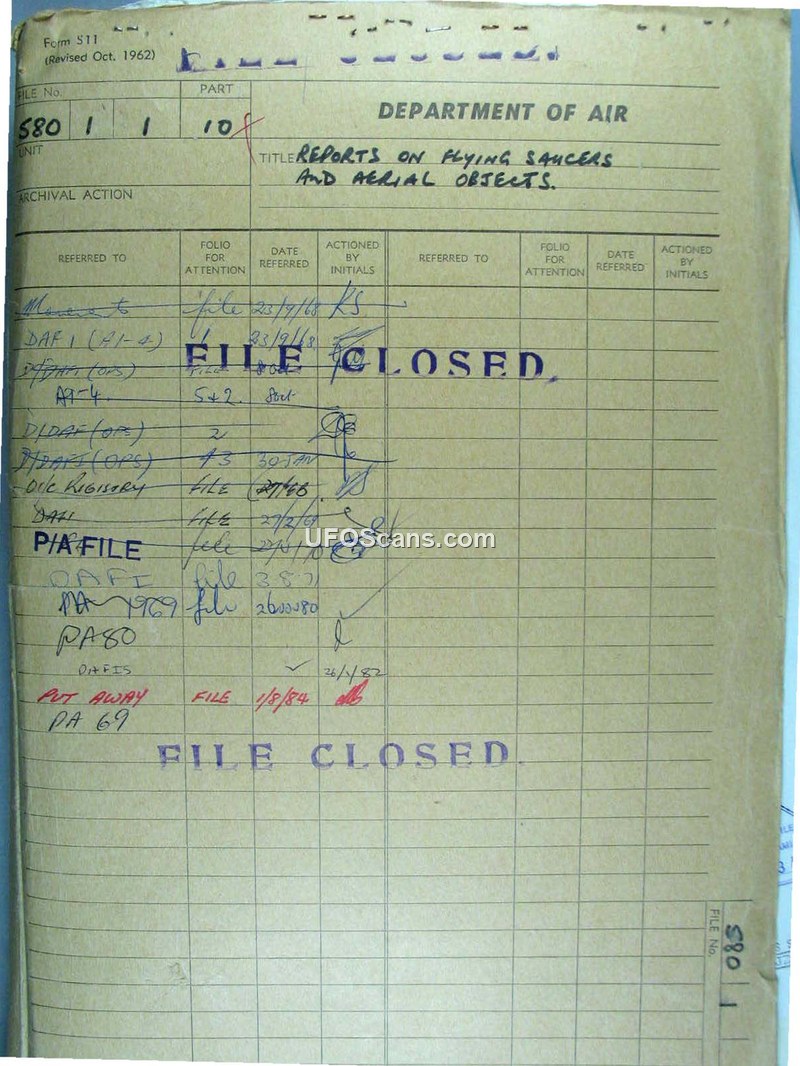 Form S11
(Revised Oct. 1962)
FILE CLOSED.
FILE No.
PART
580 1 1
10
DEPARTMENT OF AIR
UNIT
TITLE REPORTS ON FLYING SAUCERS
AND AERIAL OBJECTS.
ARCHIVAL ACTION
REFERRED TO
FOLIO FOR ATTENTION
DATE REFERRED
ACTIONED BY INITIALS
REFERRED TO
FOLIO FOR ATTENTION
DATE REFERRED
ACTIONED BY INITIALS
file 23/9/68 KS
DAFI (A1-4) 1 23/9/68
FILE CLOSED.
D/DAFI (OPS) FILE 8 Oct
A1-4. 5+2. 8 Oct
D/DAF (OPS) 2
D/DAFI (OPS) 30 JAN
O/C REGISTRY FILE
DAFI FILE 27/2/69
UFOScans.com
P/A FILE file
DAFI file
1969 file 26 Nov 80
PA80
DAFIS 26/1/82
PUT AWAY FILE 1/8/84
PA 69
FILE CLOSED.
FILE No.
580 1